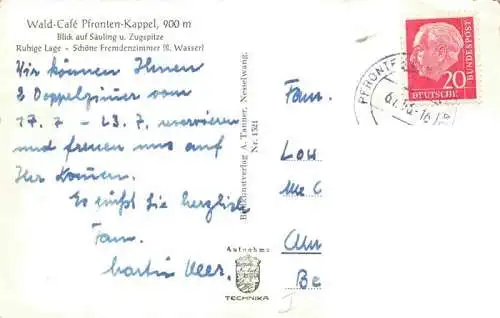 Wald-Café Pfronten-Kappel, 900 m
Blick auf Säuling u. Zugspitze
Ruhige Lage - Schöne Fremdenzimmer (fl. Wasser)
Wir können Ihnen
2 Doppelzimmer vom
17. 7 - 23. 7. reservieren
und freuen uns auf
Ihr Kommen.
Es grüßt Sie herzlichst
Fam.
Martin Heer.
Kunstverlag A. Tanner, Nesselwang.
Nr. 1321
Aufnahme
TECHNIKA
PFRONTE
20
DEUTSCHE
BUNDESPOST
Fam.
Low
Be
I